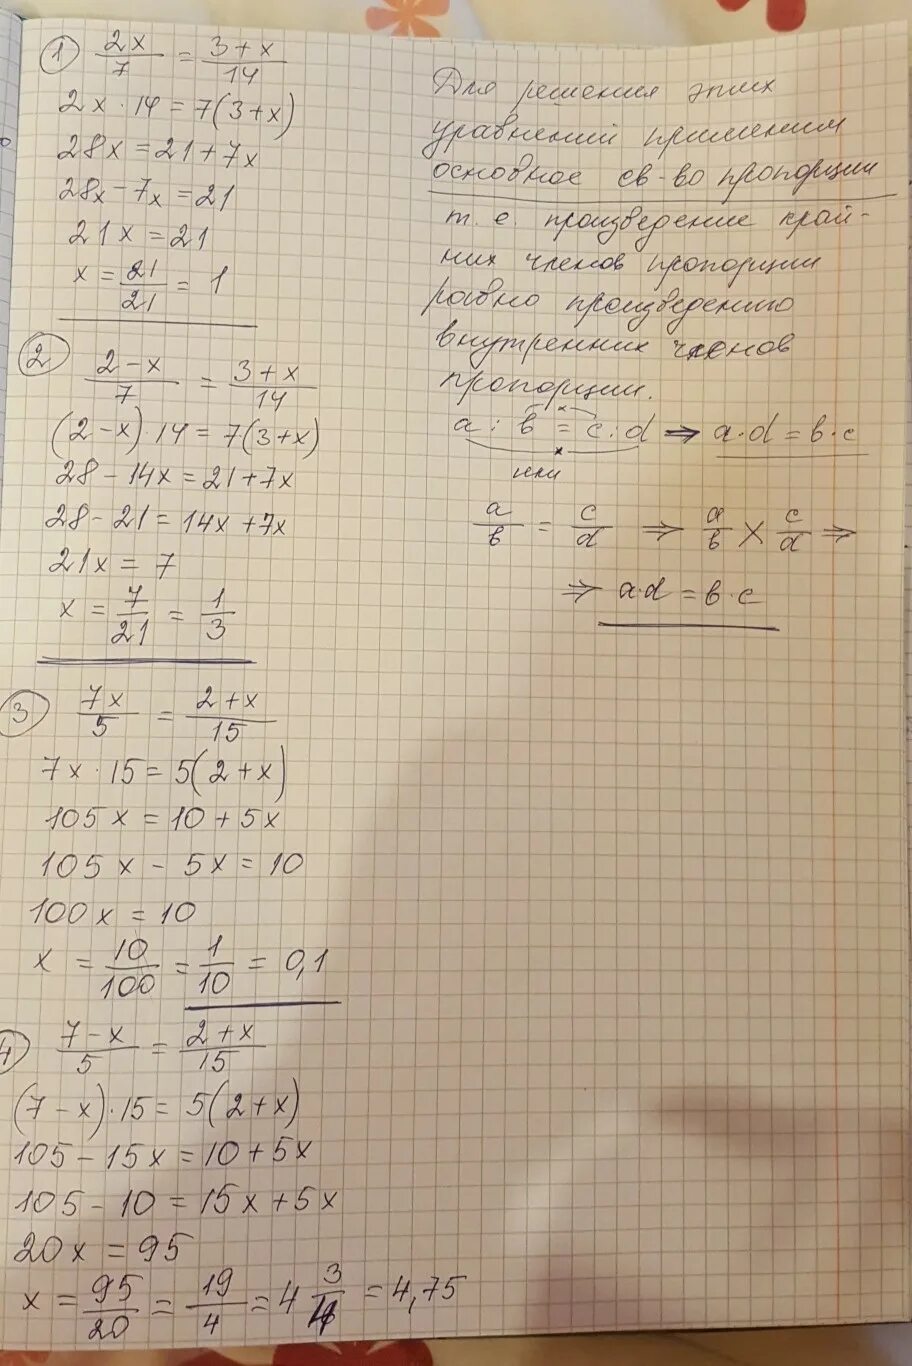 1 2x/7 = 3+x/14
2x · 14 = 7(3+x)
28x = 21 + 7x
28x - 7x = 21
21x = 21
x = 21/21 = 1
2 2-x/7 = 3+x/14
(2-x) · 14 = 7(3+x)
28 - 14x = 21 + 7x
28 - 21 = 14x + 7x
21x = 7
x = 7/21 = 1/3
3 7x/5 = 2+x/15
7x · 15 = 5(2+x)
105x = 10 + 5x
105x - 5x = 10
100x = 10
x = 10/100 = 1/10 = 0,1
4 7-x/5 = 2+x/15
(7-x) · 15 = 5(2+x)
105 - 15x = 10 + 5x
105 - 10 = 15x + 5x
20x = 95
x = 95/20 = 19/4 = 4 3/4 = 4,75
Для решения этих
уравнений применим
основное св-во пропорции
т. е. произведение край-
них членов пропорции
равно произведению
внутренних членов
пропорции.
a : b = c : d ⇒ a·d = b·c
или
a/b = c/d ⇒ a/b X c/d ⇒
⇒ a·d = b·c